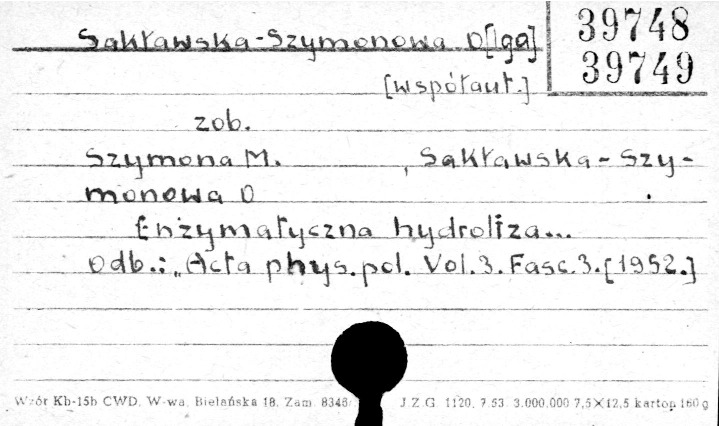 Sakławska-Szymonowa O[lga]
39748
39749
[współaut.]
zob.
Szymona M. , Sakławska-Szy-
monowa O .
Enzymatyczna hydroliza...
Odb.: „Acta phys. pol. Vol. 3. Fasc. 3. [1952.]
Wzór Kb-15b CWD, W-wa, Bielańska 18. Zam. 8346/ J.Z.G. 1120. 7.53. 3.000.000 7,5×12,5 karton 160 g